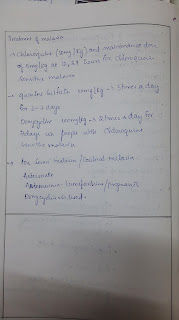 Treatment of malaria
→ Chloroquine (10mg/kg) and maintenance dose
of 5mg/kg at 12, 24 hours for chloroquine
Sensitive malaria
→ quinine Sulfate 10mg/kg → 3 times a day
for days
Doxycycline 100mg/kg → 2 times a day for
7 days in people with Chloroquine
malaria
→ malaria / Cerebral malaria
Artesunate
lumefantrine / pregnants
Doxycycline is used.